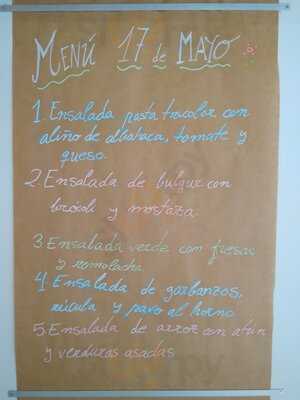 MENÚ 17 de MAYO
1. Ensalada pasta tricolor con
aliño de albahaca, tomate y
queso.
2. Ensalada de bulgur con
brócoli y mostaza
3. Ensalada verde con fresas
y remolacha
4. Ensalada de garbanzos,
rúcula y pavo al horno
5. Ensalada de arroz con atún
y verduras asadas